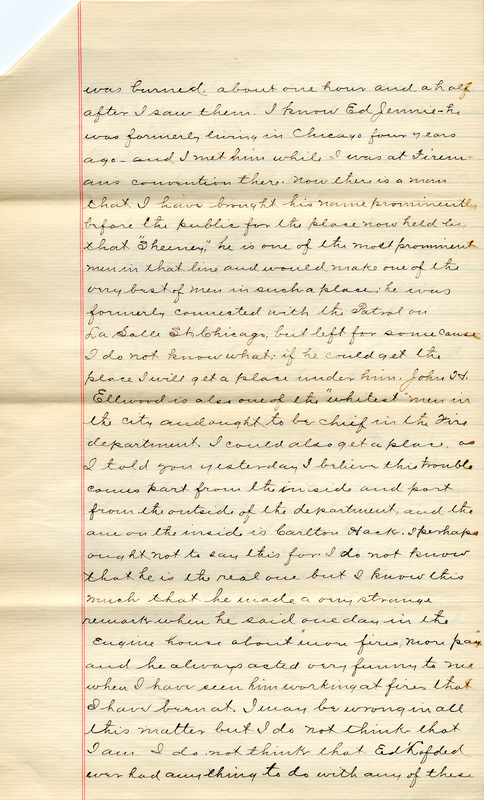 was burned. about one hour and a half
after I saw them. I know Ed Jennie - he
was formerly living in Chicago four years
ago - and I met him while I was at Firem-
ans convention there. Now there is a man
that I have brought his name prominently
before the public for the place now held by
that "Sheeney," he is one of the most prominent
men in that line and would make one of the
very best of men in such a place; he was
formerly connected with the Patrol on
La Salle St. Chicago, but left for some cause
I do not know what; if he could get the
place I will get a place under him. John H.
Ellwood is also one of the "whitest" men in
the city and ought to be chief in the Fire
department. I could also get a place, as
I told you yesterday I believe this trouble
comes part from the inside and part
from the outside of the department, and the
one on the inside is Carlton Hack. I perhaps
ought not to say this for I do not know
that he is the real one but I know this
much that he made a very strange
remark when he said one day in the
Engine house about "more fires, more pay"
and he always acted very funny to me
when I have seen him working at fires that
I have been at. I may be wrong in all
this matter but I do not think that
I am. I do not think that Ed
ever had anything to do with any of these